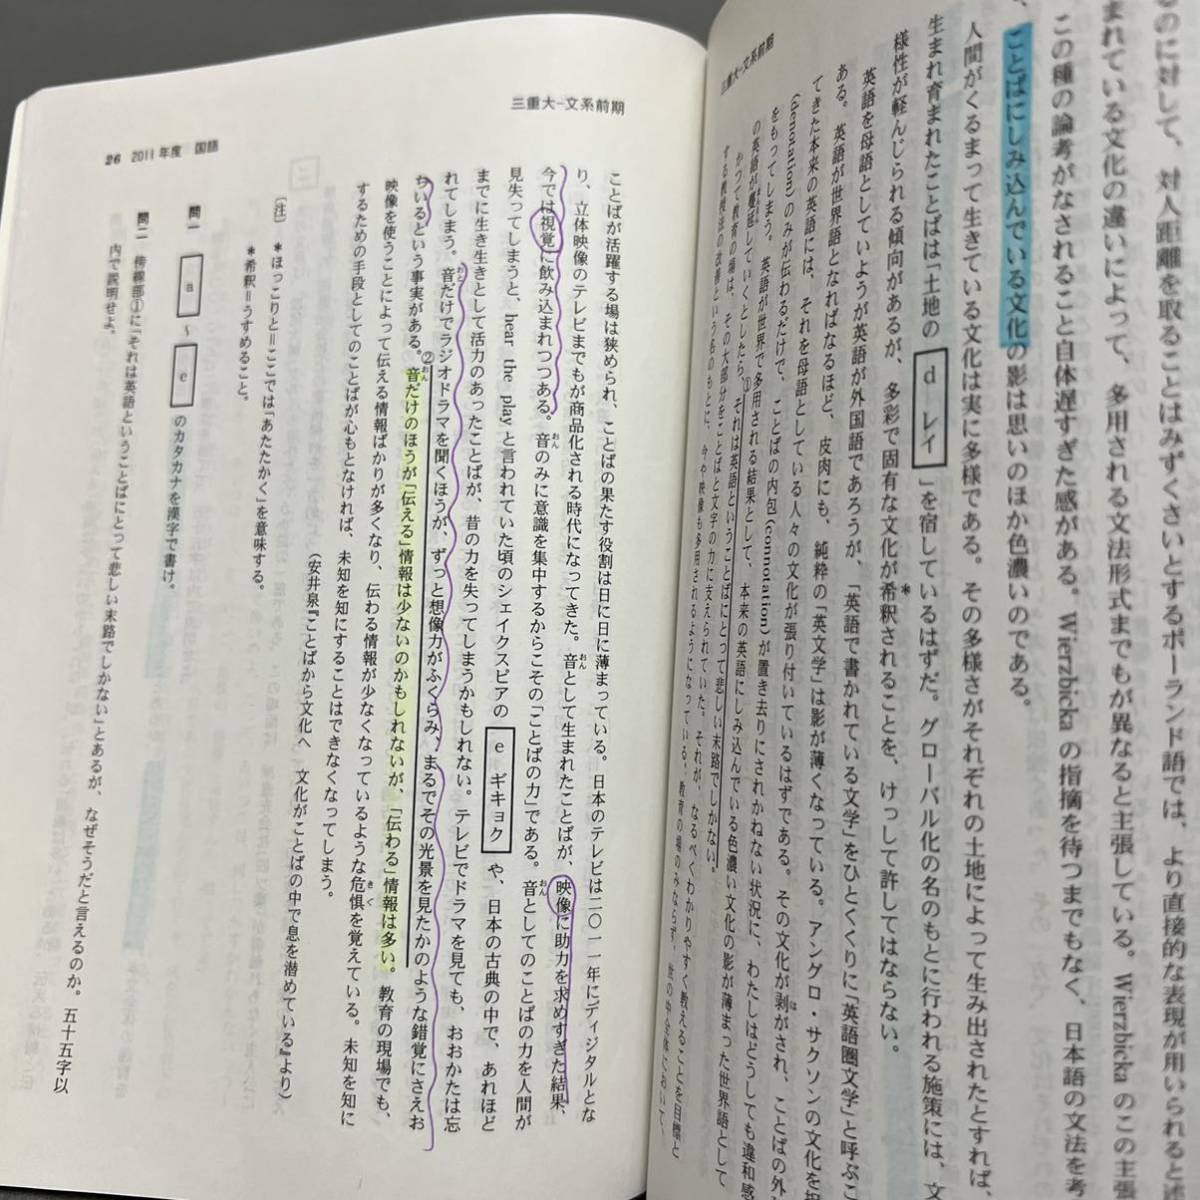 三重大-文系前期
るのに対して、対人距離を取ることはみずくさいとするポーランド語では、より直接的な表現が用いられると述
まれている文化の違いによって、多用される文法形式までもが異なると主張している。Wierzbicka のこの主張
この種の論考がなされること自体遅すぎた感がある。Wierzbicka の指摘を待つまでもなく、日本語の文法を考
、ことばにしみ込んでいる文化の影は思いのほか色濃いのである。
人間がくるまって生きている文化は実に多様である。その多様さがそれぞれの土地によって生み出されたとすれば
生まれ育まれたことばは「土地の d レイ 」を宿しているはずだ。グローバル化の名のもとに行われる施策には、文
様性が軽んじられる傾向があるが、多彩で固有な文化が希釈*されることを、けっして許してはならない。
英語を母語としていようが英語が外国語であろうが、「英語で書かれている文学」をひとくくりに「英語圏文学」と呼ぶこ
ある。英語が世界語となればなるほど、皮肉にも、純粋の「英文学」は影が薄くなっている。アングロ・サクソンの文化を担
てきた本来の英語には、それを母語としている人々の文化が張り付いているはずである。その文化が剥がされ、ことばの外
(denotation)のみが伝わるだけで、ことばの内包(connotation)が置き去りにされかねない状況に、わたしはどうしても違和感
をもってしまう。英語が世界で多用される結果として、本来の英語にしみ込んでいる色濃い文化の影が薄まった世界語として
の英語が蔓延していくとしたら、①それは英語ということばにとって悲しい末路でしかない。
かつて教育の場は、その大部分をことばと文字の力に支えられていた。それが、なるべくわかりやすく教えることを目標と
する教授法の改善という名のもとに、今や映像も多用されるようになっている。教育の場のみならず、世の中全体において、
三重大-文系前期
26 2011年度 国語
ことばが活躍する場は狭められ、ことばの果たす役割は日に日に薄まっている。日本のテレビは二〇一一年にディジタルとな
り、立体映像のテレビまでもが商品化される時代になってきた。音として生まれたことばが、映像に助力を求めすぎた結果、
今では視覚に飲み込まれつつある。音のみに意識を集中するからこその「ことばの力」である。音としてのことばの力を人間が
見失ってしまうと、hear the play と言われていた頃のシェイクスピアの e ギキョク や、日本の古典の中で、あれほど
までに生き生きとして活力のあったことばが、昔の力を失ってしまうかもしれない。テレビでドラマを見ても、おおかたは忘
れてしまう。音だけでラジオドラマを聞くほうが、ずっと想像力がふくらみ、まるでその光景を見たかのような錯覚にさえお
ちいるという事実がある。②音だけのほうが「伝える」情報は少ないのかもしれないが、「伝わる」情報は多い。教育の現場でも、
映像を使うことによって伝える情報ばかりが多くなり、伝わる情報が少なくなっているような危惧を覚えている。未知を知に
するための手段としてのことばが心もとなければ、未知を知にすることはできなくなってしまう。
(安井泉『ことばから文化へ 文化がことばの中で息を潜めている』より)
〔注〕 *ほっこりと=ここでは「あたたかく」を意味する。
*希釈=うすめること。
問一 a ～ e のカタカナを漢字で書け。
問二 傍線部①に「それは英語ということばにとって悲しい末路でしかない」とあるが、なぜそうだと言えるのか。五十五字以
内で説明せよ。